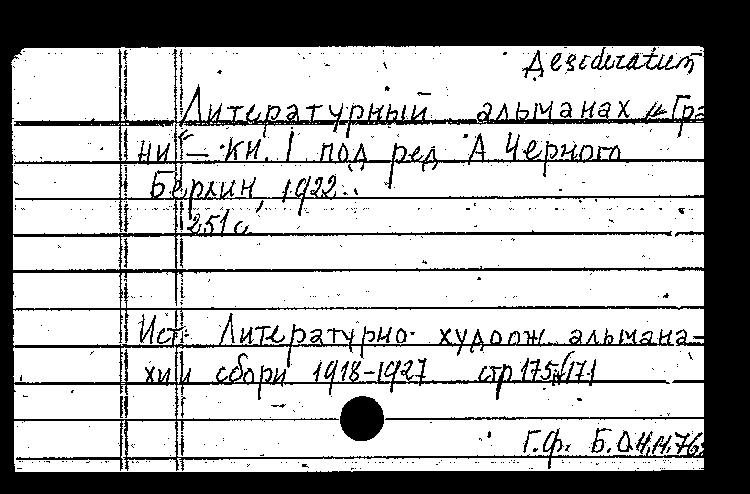 Desideratum
Литературный альманах „Гра
ни“ — кн. 1 под ред А Черного
Берлин, 1922.
251 с
Ист. Литературно-худож. альмана-
хи и сборн 1918-1927 стр 175
Г.Ф. Б.